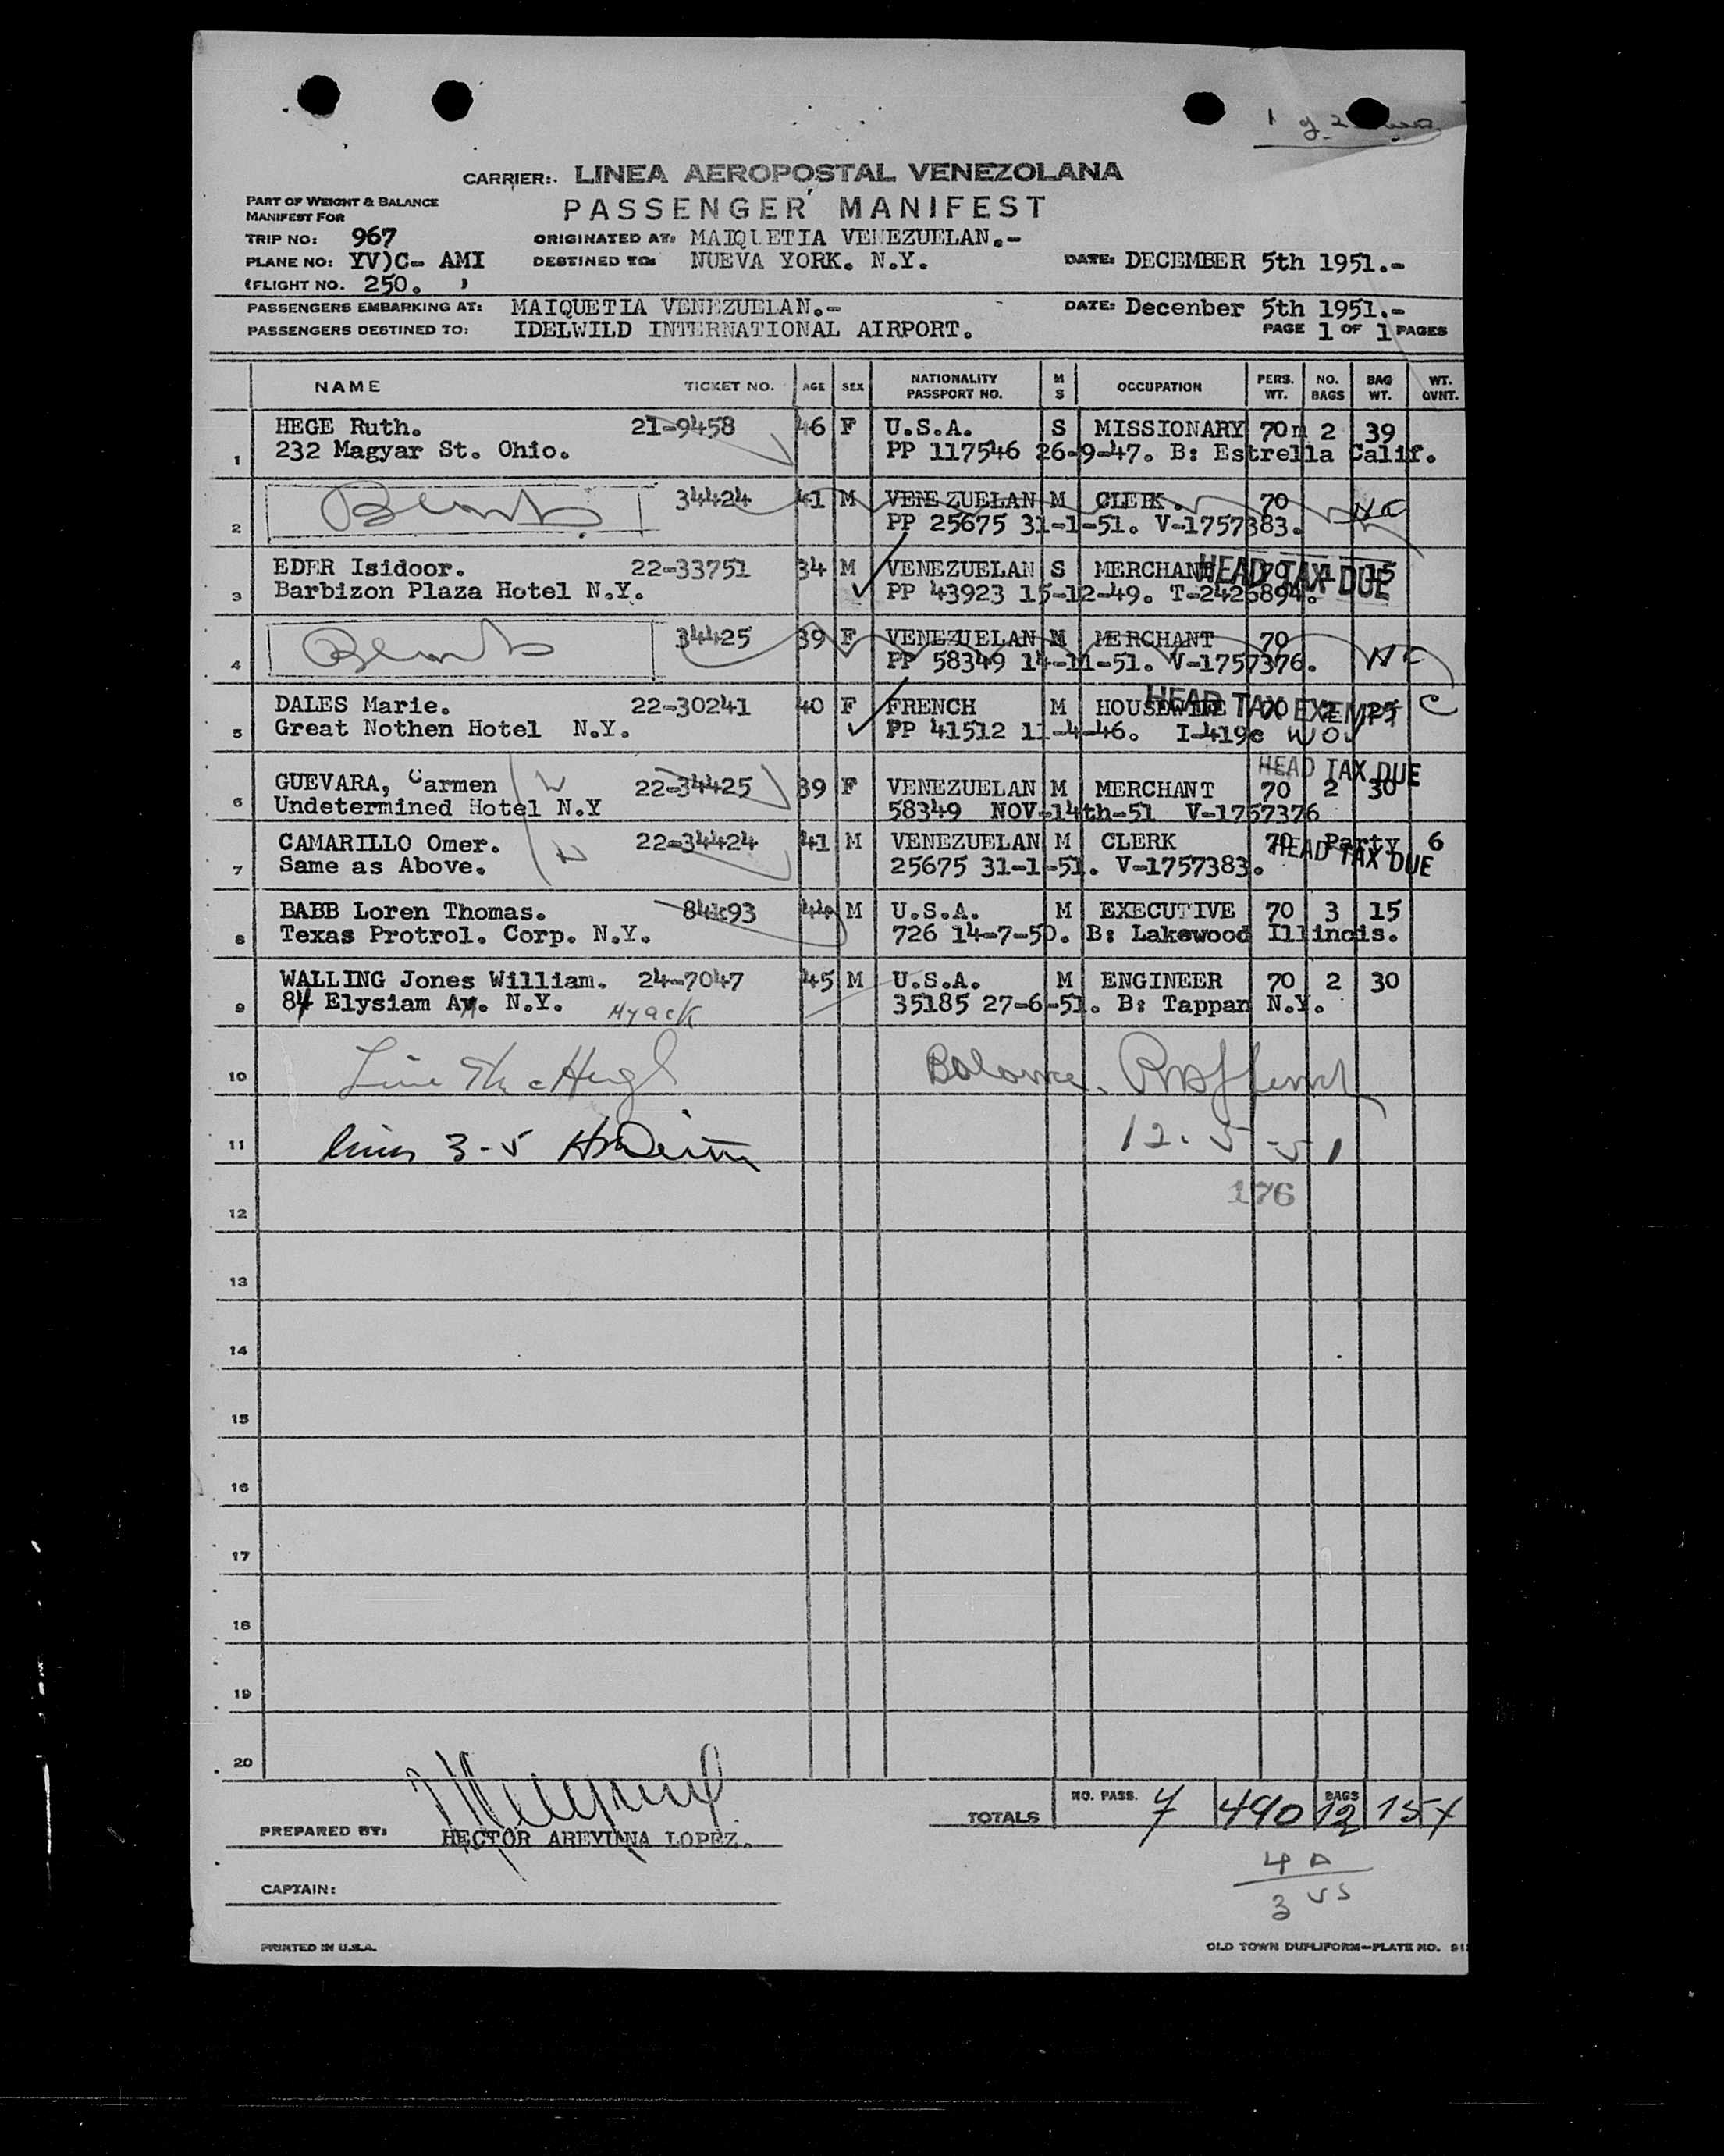 1 of 2
CARRIER: LINEA AEROPOSTAL VENEZOLANA
PART OF WEIGHT & BALANCE
MANIFEST FOR
PASSENGER MANIFEST
TRIP NO: 967 ORIGINATED AT: MAIQUETIA VENEZUELAN.-
PLANE NO: YV)C- AMI DESTINED TO: NUEVA YORK. N.Y. DATE: DECEMBER 5th 1951.-
(FLIGHT NO. 250. )
PASSENGERS EMBARKING AT: MAIQUETIA VENEZUELAN.- DATE: Decenber 5th 1951.-
PASSENGERS DESTINED TO: IDELWILD INTERNATIONAL AIRPORT. PAGE 1 OF 1 PAGES
NAME TICKET NO. AGE SEX NATIONALITY PASSPORT NO. M S OCCUPATION PERS. WT. NO. BAGS BAG WT. WT. OVNT.
HEGE Ruth. 21-9458 46 F U.S.A. S MISSIONARY 70 2 39
1 232 Magyar St. Ohio. PP 117546 26-9-47. B: Estrella Calif.
34424 41 M VENEZUELAN M CLERK. 70
2 PP 25675 31-1-51. V-1757383.
EDER Isidoor. 22-33751 34 M VENEZUELAN S MERCHANT 70 1 15 HEAD TAX DUE
3 Barbizon Plaza Hotel N.Y. PP 43923 15-12-49. T-2426894.
34425 39 F VENEZUELAN M MERCHANT 70
4 PP 58349 14-11-51. V-1757376.
DALES Marie. 22-30241 40 F FRENCH M HOUSEWIFE 70 2 25 C HEAD TAX EXEMPT
5 Great Nothen Hotel N.Y. PP 41512 11-4-46. I-419c
HEAD TAX DUE
GUEVARA, Carmen 22-34425 39 F VENEZUELAN M MERCHANT 70 2 30
6 Undetermined Hotel N.Y 58349 NOV-14th-51 V-1757376
CAMARILLO Omer. 22-34424 41 M VENEZUELAN M CLERK 70 Party 6 HEAD TAX DUE
7 Same as Above. 25675 31-1-51. V-1757383.
BABB Loren Thomas. 44 M U.S.A. M EXECUTIVE 70 3 15
8 Texas Protrol. Corp. N.Y. 726 14-7-50. B: Lakewood Illinois.
WALLING Jones William. 24-7047 45 M U.S.A. M ENGINEER 70 2 30
9 84 Elysiam Av. N.Y. 35185 27-6-51. B: Tappan N.Y.
10 Balance
11 lines 3-5 12-5-51
176
12
13
14
15
16
17
18
19
20
TOTALS NO. PASS. 7 490 BAGS 12 154
PREPARED BY: HECTOR AREYUNA LOPEZ.
4 A
3 US
CAPTAIN:
PRINTED IN U.S.A. OLD TOWN DUPLIFORM—PLATE NO.